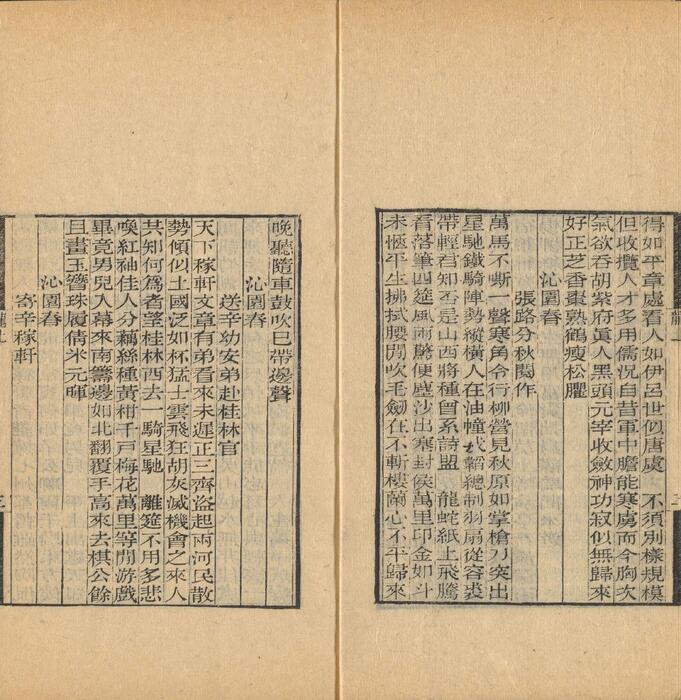 得如平章處看人如伊呂世似唐虞　不須別樣規模
但收攬人才多用儒況自昔軍中膽能寒虜而今胸次
氣欲吞胡紫府眞人黑頭元宰收斂神功寂似無歸來
好正芝香棗熟鶴瘦松臞
沁園春
張路分秋閱作
萬馬不嘶一聲寒角令行柳營見秋原如掌槍刀突出
星馳鐵騎陣勢縱橫人在油幢戎韜總制羽扇從容裘
帶輕君知否是山西將種曾系詩盟　龍蛇紙上飛騰
看落筆四筵風雨驚便塵沙出塞封侯萬里印金如斗
未愜平生拂拭腰閒吹毛劒在不斬樓蘭心不平歸來
晚聽隨車鼓吹巳帶邊聲
沁園春
送辛幼安弟赴桂林官
天下稼軒文章有弟看來未遲正三齊盜起兩河民散
勢傾似土國泛如杯猛士雲飛狂胡灰滅機會之來人
共知何為者望桂林西去一騎星馳　離筵不用多悲
喚紅袖佳人分藕絲種黃柑千戸梅花萬里等閒游戲
畢竟男兒入幕來南籌邊如北翻覆手高來去棋公餘
且畫玉簪珠履倩米元暉
沁園春
寄辛稼軒